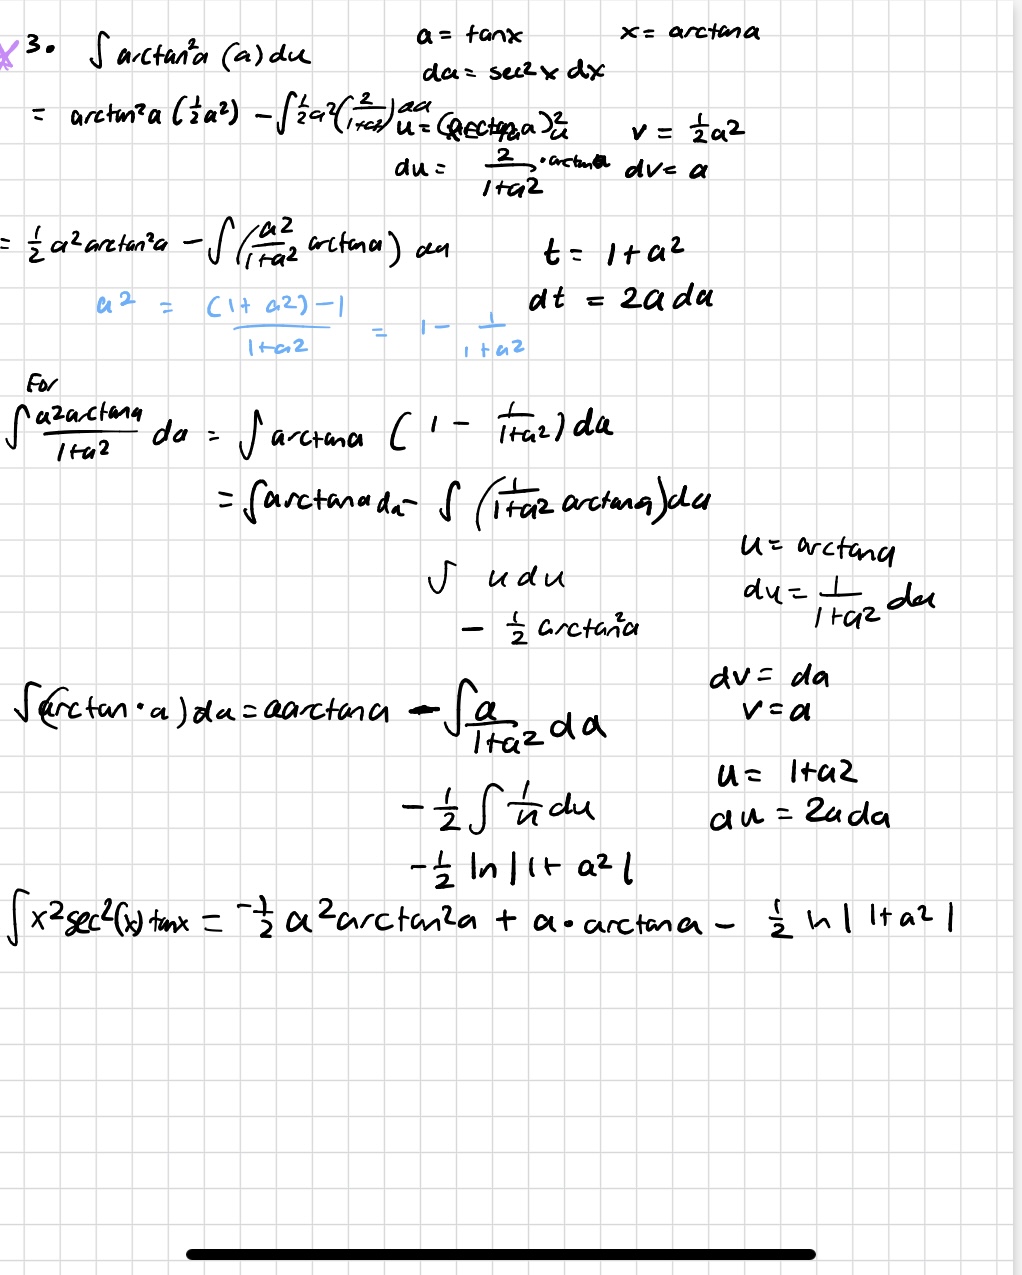 3. ∫ arctan²a (a) du a = tanx x = arctana
da = sec² x dx
= arctan²a (½a²) − ∫½a²(2/(1+a²)) da u = (arctana)² v = ½a²
du = 2/(1+a²) · arctana dv = a
= ½ a² arctan²a − ∫(a²/(1+a²) arctana) da t = 1 + a²
dt = 2a da
a² = ((1 + a2) − 1)/(1+a2) = 1 − 1/(1+a2)
For
∫ a2arctana/(1+a2) da = ∫ arctana (1 − 1/(1+a2)) da
= ∫arctana da − ∫ (1/(1+a2) arctana)da
u = arctana
∫ u du du = 1/(1+a2) da
− ½ arctan²a
dv = da
∫(arctan·a)da = aarctana − ∫ a/(1+a2) da v = a
u = 1+a2
− ½ ∫ 1/u du du = 2a da
− ½ ln |1+ a²|
∫x²sec²(x) tanx = −½ a²arctan²a + a·arctana − ½ ln | 1+a² |